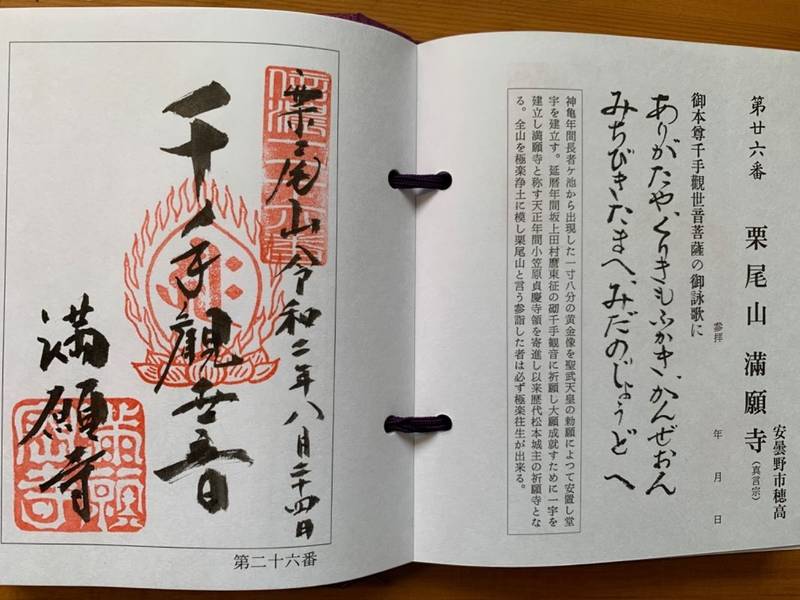 安曇野市穂高
第廿六番 栗尾山 滿願寺
(真言宗)
参拝 年 月 日
御本尊千手觀世音菩薩の御詠歌に
ありがたや、くりきもふかき、かんぜおん
みちびきたまへ、みだのじょうどへ
神亀年間長者ヶ池から出現した一寸八分の黄金像を聖武天皇の勅願によつて安置し堂
宇を建立す。延暦年間坂上田村麿東征の砌千手観音に祈願し大願成就すために一宇を
建立し満願寺と称す天正年間小笠原貞慶寺領を寄進し以来歴代松本城主の祈願寺とな
る。全山を極楽浄土に模し栗尾山と言う参詣した者は必ず極楽往生が出来る。
栗尾山 令和二年八月二十四日
千手觀世音
満願寺
第二十六番